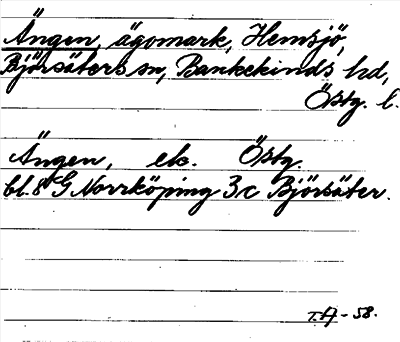 Ängen, ägomark, Hemsjö,
Björsäters sn, Bankekinds hd,
Östg. l.
Ängen, ek. Östg.
bl. 8 G Norrköping 3c Björsäter.
- 58.